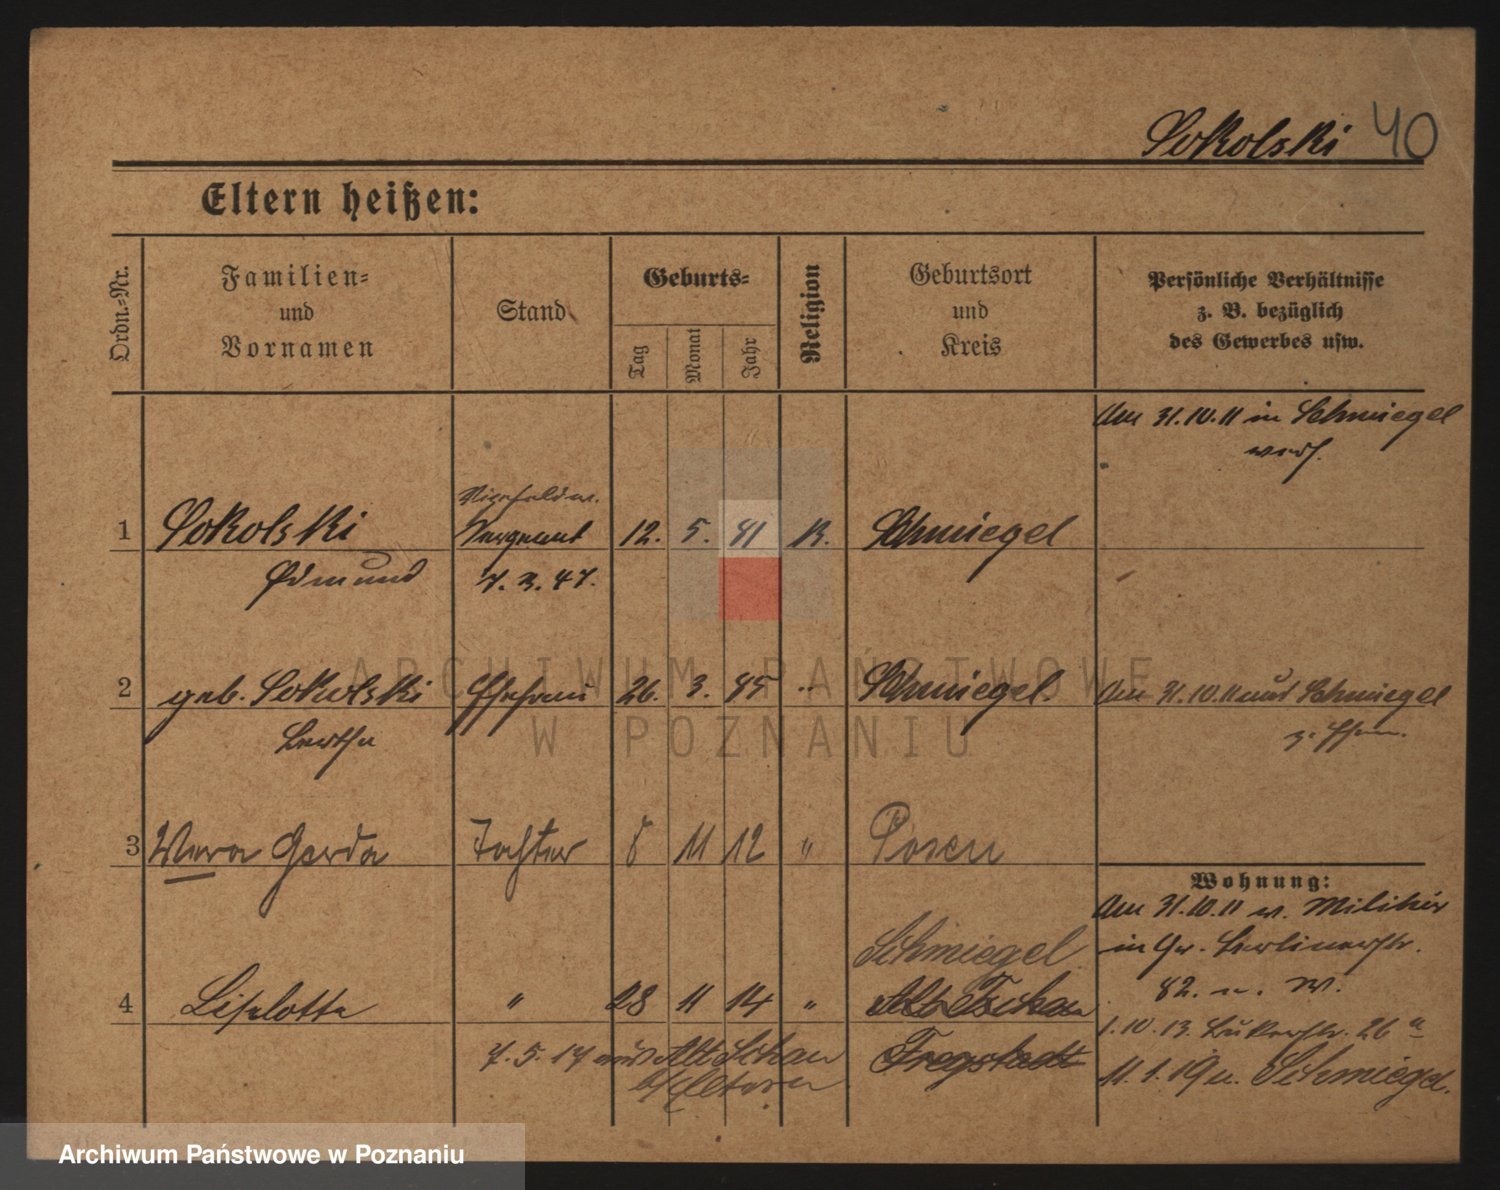 Sokolski 40
Eltern heißen:
Ordn.-Nr.
Familien-
und
Vornamen
Stand
Geburts-
Tag
Monat
Jahr
Religion
Geburtsort
und
Kreis
Persönliche Verhältnisse
z. B. bezüglich
des Gewerbes usw.
Am 31.10.11 in Schmiegel
verh.
Vizefeldw.
1 Sokolski Sergeant 12. 5. 81 K. Schmiegel
Edmund 7. 3. 47.
2 geb. Sokolski Ehefrau 26. 3. 85 " Schmiegel. Am 31.10.11 aus Schmiegel
Bertha z. Ehem.
3 Wera Gerda Tochter 8 11 12 " Posen
Wohnung:
Am 31.10.11 v. Militär
Schmiegel in Gr. Berlinerstr.
82. n. W.
4 Liselotte " 28 11 14 " Alt Tschau
1.10.13. Bukerstr. 26 a
7.5.17 aus Alt Schau Freystadt
b/Eltern 11.1.19 n. Schmiegel.
ARCHIWUM PAŃSTWOWE
W POZNANIU
Archiwum Państwowe w Poznaniu